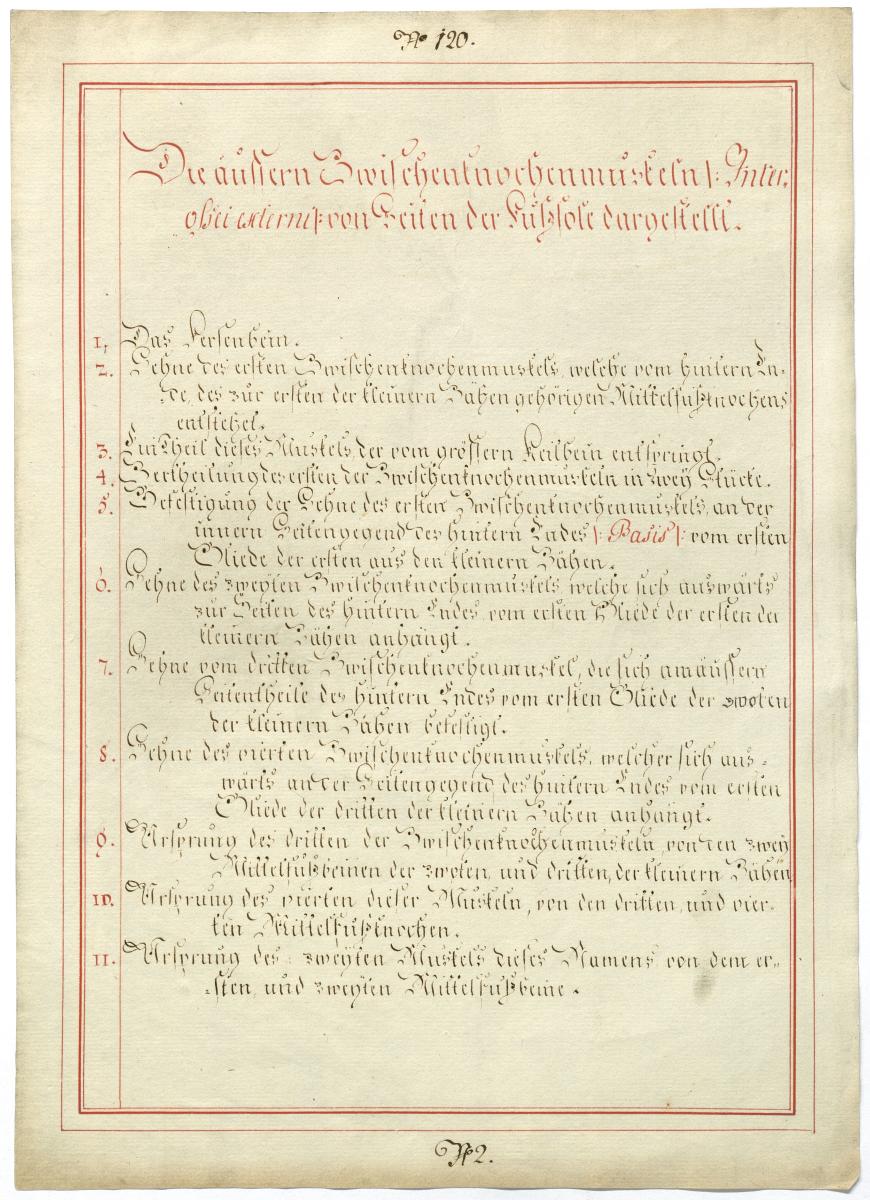 No 120.
Die äussern Zwischenknochenmuskeln /: Inter,
ossei externi :/ von Seiten der Fußsole dargestellt.
1, Das Fersenbein.
2. Sehne des ersten Zwischenknochenmuskels, welche vom hintern En-
de, des zur ersten der kleinern Zähen gehörigen Mittelfußknochens
entstehet.
3. Ein Theil dieses Muskels, der vom grössern Keilbein entspringt.
4. Zertheilung des ersten der Zwischenknochenmuskeln in zwey Stücke.
5. Befestigung der Sehne des ersten Zwischenknochenmuskels, an der
innern Seitengegend des hintern Endes /: Basis :/ vom ersten
Gliede der ersten aus den kleinern Zähen.
6. Sehne des zweyten Zwischenknochenmuskels, welche sich auswärts
zur Seiten des hintern Endes vom ersten Gliede der ersten der
kleinern Zähen anhängt.
7. Sehne vom dritten Zwischenknochenmuskel, die sich am äussern
Seitentheile des hintern Endes vom ersten Gliede der zwoten
der kleinern Zähen befestigt.
8. Sehne des vierten Zwischenknochenmuskels, welcher sich aus-
wärts an der Seitengegend des hintern Endes vom ersten
Gliede der dritten der kleinern Zähen anhängt.
9. Ursprung des dritten der Zwischenknochenmuskeln, von den zwey
Mittelfußbeinen der zwoten, und dritten, der kleinern Zähen
10. Ursprung des vierten dieser Muskeln, von den dritten, und vier-
ten Mittelfußknochen.
11. Ursprung des zweyten Muskels dieses Namens von dem er-
sten, und zweyten Mittelfußbeine.
No 2.